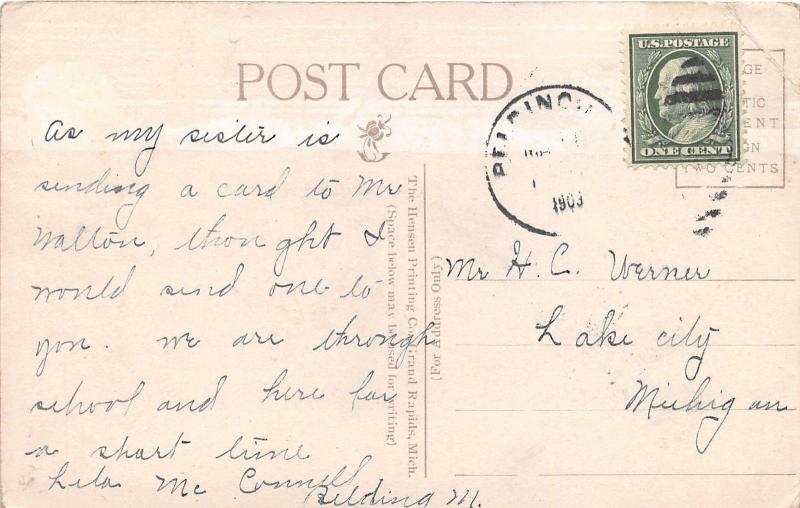 POST CARD
U.S. POSTAGE
ONE CENT
GE
TIC
ENT
GN
TWO CENTS
BELDING
1909
As my sister is
sending a card to Mr
Walton, thought I
would send one to
you. We are through
school and here for
a short time
Lela Mc Connell
Belding M.
The Hensen Printing Co. Grand Rapids, Mich.
(Space below may be used for writing)
(For Address Only)
Mr H. C. Werner
Lake city
Michigan